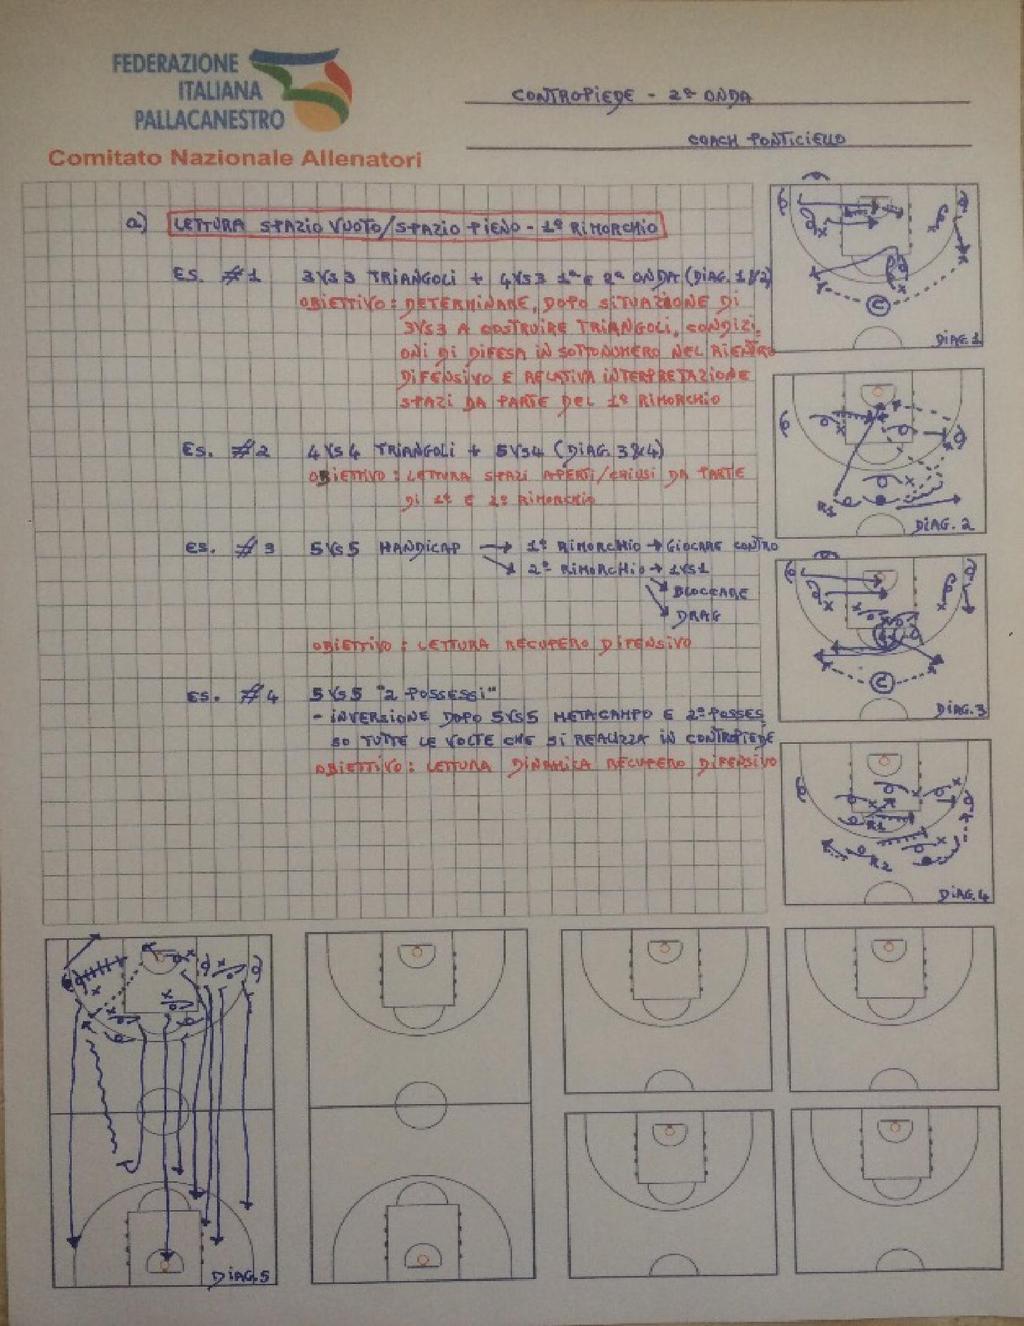 FEDERAZIONE
ITALIANA
PALLACANESTRO
Comitato Nazionale Allenatori
CONTROPIEDE - 2ª ONDA
COACH PONTICIELLO
a) LETTURA SPAZIO VUOTO/SPAZIO PIENO - 1º RIMORCHIO
ES. #1 3VS3 TRIANGOLI + 4VS3 1ª E 2ª ONDA (DIAG. 1&2)
OBIETTIVO: DETERMINARE, DOPO SITUAZIONE DI
3VS3 A COSTRUIRE TRIANGOLI, CONDIZI.
ONI DI DIFESA IN SOTTONUMERO NEL RIENTRO
DIFENSIVO E RELATIVA INTERPRETAZIONE
SPAZI DA PARTE DEL 1º RIMORCHIO
ES. #2 4VS4 TRIANGOLI + 5VS4 (DIAG. 3&4)
OBIETTIVO: LETTURA SPAZI APERTI/CHIUSI DA PARTE
DI 1º E 2º RIMORCHIO
ES. #3 5VS5 HANDICAP → 1º RIMORCHIO → GIOCARE CONTRO
2º RIMORCHIO → 1VS1
BLOCCARE
DRAG
OBIETTIVO: LETTURA RECUPERO DIFENSIVO
ES. #4 5VS5 "2 POSSESSI"
- INVERSIONE DOPO 5VS5 METACAMPO E 2º POSSES.
SO TUTTE LE VOLTE CHE SI REALIZZA IN CONTROPIEDE
OBIETTIVO: LETTURA DINAMICA RECUPERO DIFENSIVO
C
DIAG.1
R1
DIAG. 2
C
DIAG.3
R1
R2
DIAG.4
DIAG.5